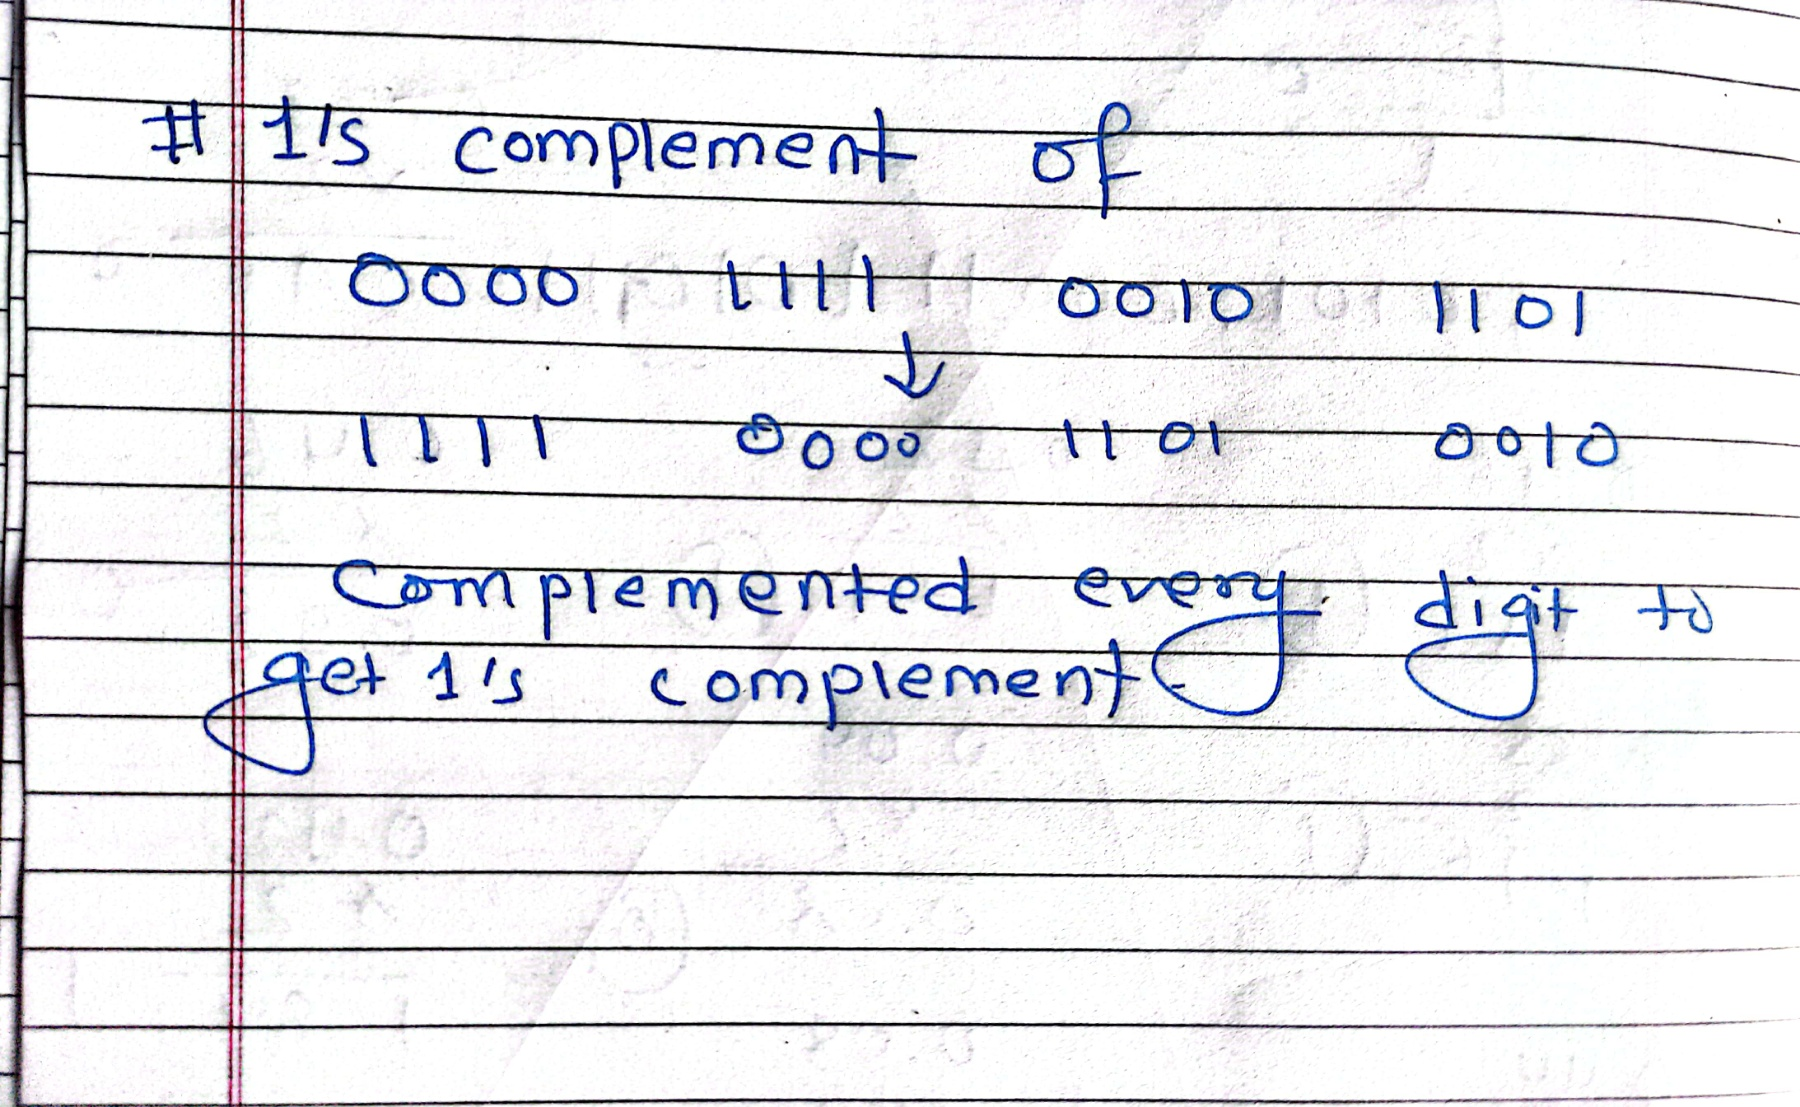 # 1's complement of
0000 1111 0010 1101
↓
1111 0000 1101 0010
Complemented every digit to
get 1's complement